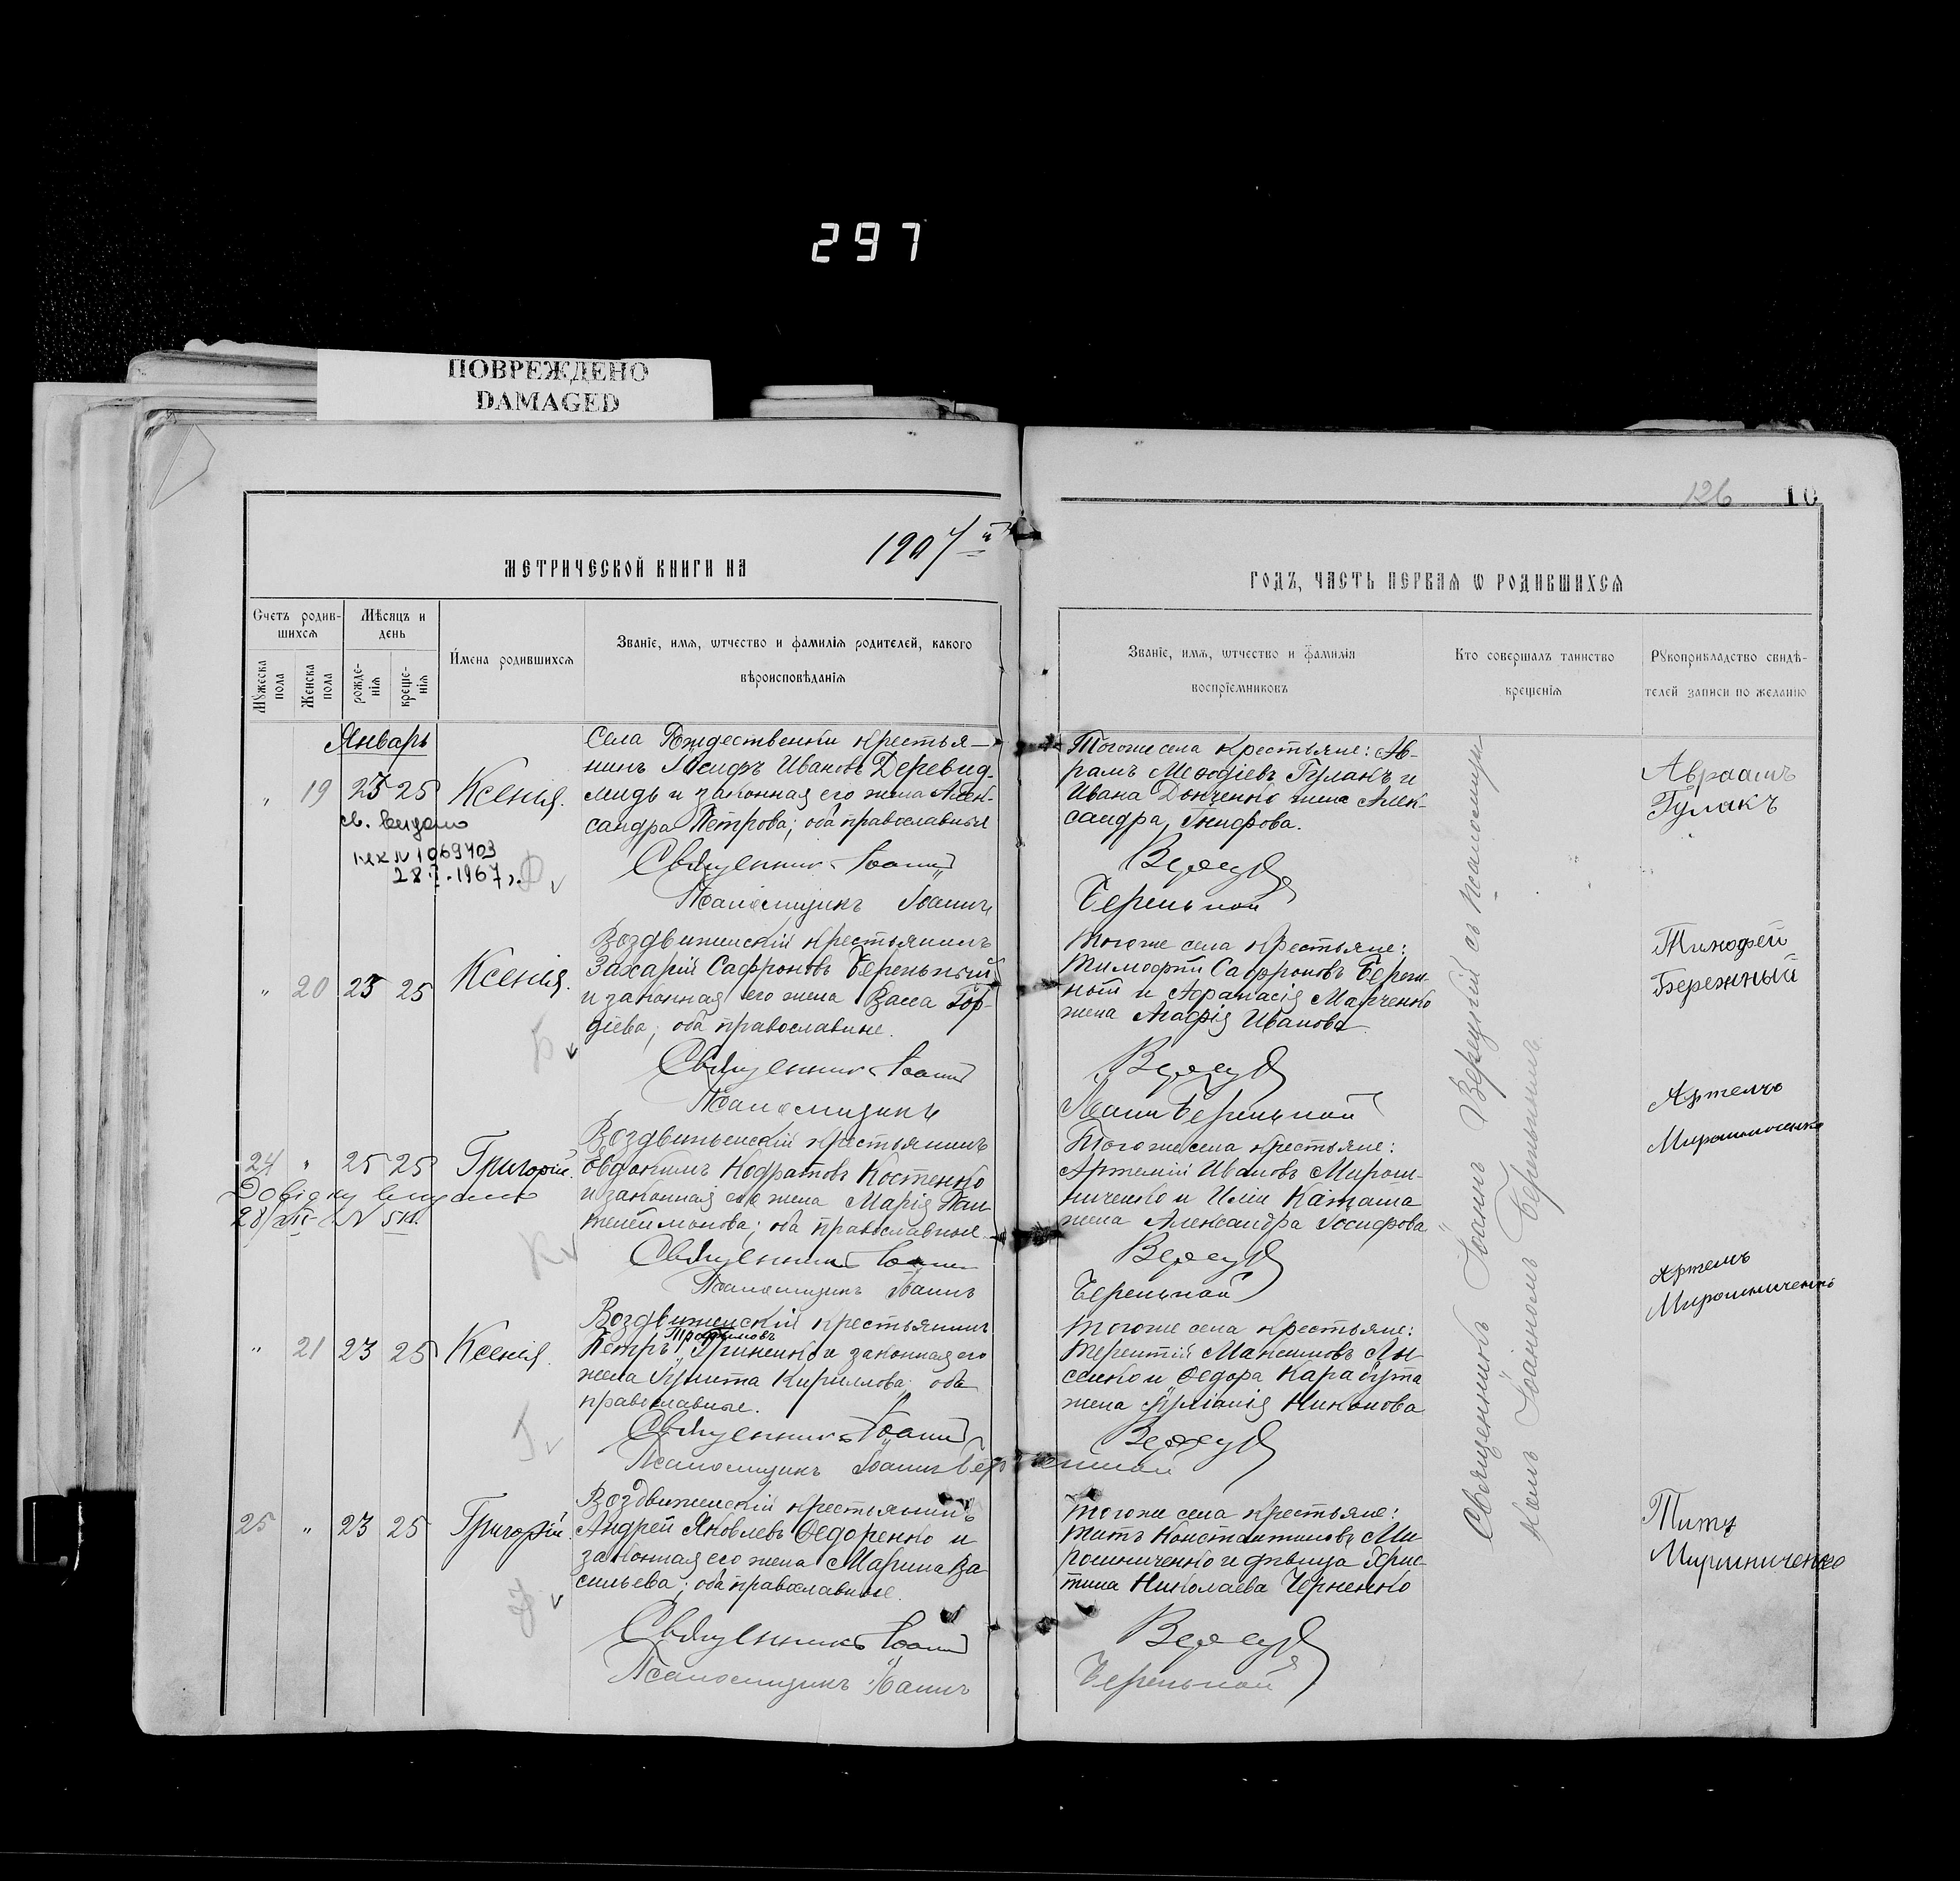 297
ПОВРЕЖДЕНО
DAMAGED
126 10
МЕТРИЧЕСКОЙ КНИГИ НА 1907 й
ГОДЪ, ЧАСТЬ ПЕРВАЯ Ѡ РОДИВШИХСЯ
Счетъ родив-
шихся
Мѣсяцъ и
день
Мꙋжеска
пола
Женска
пола
рожде-
нія
креще-
нія
Имена родившихся
Званіе, имя, ѡтчество и фамилія родителей, какого
вѣроисповѣданія
Званіе, имя, ѡтчество и фамилія
воспріемниковъ
Кто совершалъ таинство
крещенія
Рꙋкоприкладство свидѣ-
телей записи по желанію
Январь
" 19 23 25 Ксенія.
св. видано
1069403
28.I.1967 г.
Села Рождественки крестья-
нинъ Іосифъ Ивановъ
и законная его жена Алек-
сандра Петрова; оба православные
Священникъ Іоаннъ
Псаломщикъ Іоаннъ
Тогоже села крестьяне: Ав-
рамъ Меѳодіевъ Гулакъ и
Ивана Донченко жена Алек-
сандра
Бережной
Авраамъ
Гулакъ
" 20 23 25 Ксенія.
Б
Воздвиженскій крестьянинъ
Захарій Сафроновъ Бережный
и законная его жена Васса Гор-
діева; оба православные.
Священникъ Іоаннъ
Псаломщикъ
Тогоже села крестьяне:
Тимофей Сафроновъ Береж-
ной и Афанасія Марченко
жена Марія Иванова
Іоаннъ Бережной
Тимофей
Бережный
24 " 25 25 Григорій.
Довідку видано
28/XII
К
Воздвиженскій крестьянинъ
Евдокимъ Кодратовъ Костенко
и законная его жена Марія Пан-
телеймонова; оба православные
Священникъ Іоаннъ
Псаломщикъ Іоаннъ
Тогоже села крестьяне:
Артемій Ивановъ Мирош-
ниченко и Иліи
жена Александра Іосифова
Бережной
Артемъ
Мирошниченко
" 21 23 25 Ксенія.
Г
Воздвиженскій крестьянинъ
Петръ Трофимовъ Гриненко и законная его
жена Іулита Кириллова; оба
православные.
Священникъ Іоаннъ
Псаломщикъ Іоаннъ Бережной
Тогоже села крестьяне:
Терентій Максимовъ Лы-
сенко и Ѳедора Карабута
жена Іуліанія Никонова
Артемъ
Мирошниченко
25 " 23 25 Григорій.
Воздвиженскій крестьянинъ
Андрей Яковлевъ Ѳедоренко и
законная его жена Марина Ва-
сильева; оба православные.
Священникъ Іоаннъ
Псаломщикъ Іоаннъ
Тогоже села крестьяне:
Титъ Константиновъ Ми-
рошниченко и дѣвица Хрис-
тина Николаева Черненко
Бережной
Титъ
Мирошниченко
Священникъ Іоаннъ съ псаломщи-
комъ Іоанномъ Бережнымъ